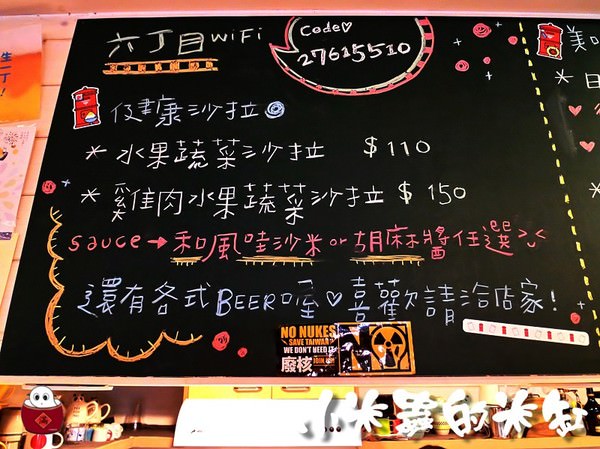 六丁目WiFi
Code♡
27615510
健康沙拉
* 水果蔬菜沙拉 $110
* 雞肉水果蔬菜沙拉 $150
sauce→和風哇沙米or胡麻醬任選
還有各式BEER喔♡喜歡請洽店家!
NO NUKES
SAVE TAIWAN
WE DON'T NEED IT
廢核
美
* 日
生
一丁!
小米蟲的米缸